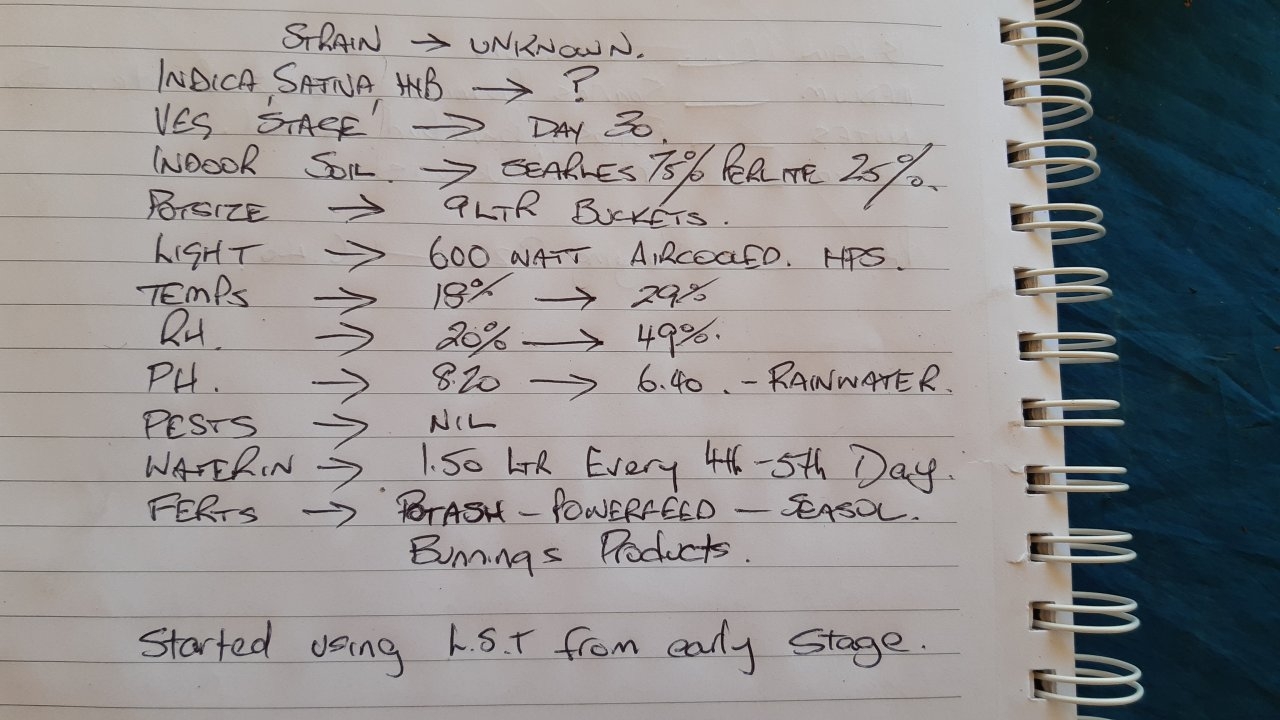 STRAIN → UNKNOWN.
INDICA, SATIVA, HYB → ?
VEG STAGE → DAY 30.
INDOOR SOIL. → SEARLES 75% PERLITE 25%.
POTSIZE → 9 LTR BUCKETS.
LIGHT → 600 WATT AIRCOOLED. HPS.
TEMPS → 18% → 29%
RH. → 20% → 49%.
PH. → 8.20 → 6.40. - RAINWATER.
PESTS → NIL
WATERIN → 1.50 LTR Every 4th - 5th Day.
FERTS → POTASH - POWERFEED - SEASOL.
Bunnings Products.
Started using L.S.T from early Stage.